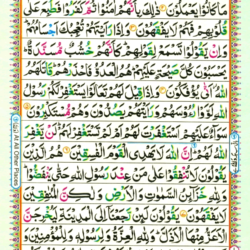 مَا كَانُوْا يَعْمَلُوْنَ ۝ ذٰلِكَ بِاَنَّهُمْ اٰمَنُوْا ثُمَّ كَفَرُوْا فَطُبِعَ عَلٰى
قُلُوْبِهِمْ فَهُمْ لَا يَفْقَهُوْنَ ۝ وَاِذَا رَاَيْتَهُمْ تُعْجِبُكَ اَجْسَامُهُمْ
وَاِنْ يَّقُوْلُوْا تَسْمَعْ لِقَوْلِهِمْ كَاَنَّهُمْ خُشُبٌ مُّسَنَّدَةٌ
يَحْسَبُوْنَ كُلَّ صَيْحَةٍ عَلَيْهِمْ هُمُ الْعَدُوُّ فَاحْذَرْهُمْ قٰتَلَهُمُ
اللّٰهُ اَنّٰى يُؤْفَكُوْنَ ۝ وَاِذَا قِيْلَ لَهُمْ تَعَالَوْا يَسْتَغْفِرْ لَكُمْ رَسُوْلُ
اللّٰهِ لَوَّوْا رُءُوْسَهُمْ وَرَاَيْتَهُمْ يَصُدُّوْنَ وَهُمْ مُّسْتَكْبِرُوْنَ ۝
سَوَآءٌ عَلَيْهِمْ اَسْتَغْفَرْتَ لَهُمْ اَمْ لَمْ تَسْتَغْفِرْ لَهُمْ لَنْ يَّغْفِرَ
اللّٰهُ لَهُمْ اِنَّ اللّٰهَ لَا يَهْدِى الْقَوْمَ الْفٰسِقِيْنَ ۝ هُمُ الَّذِيْنَ
يَقُوْلُوْنَ لَا تُنْفِقُوْا عَلٰى مَنْ عِنْدَ رَسُوْلِ اللّٰهِ حَتّٰى يَنْفَضُّوْا
وَلِلّٰهِ خَزَآئِنُ السَّمٰوٰتِ وَالْاَرْضِ وَلٰكِنَّ الْمُنٰفِقِيْنَ
لَا يَفْقَهُوْنَ ۝ يَقُوْلُوْنَ لَئِنْ رَّجَعْنَآ اِلَى الْمَدِيْنَةِ لَيُخْرِجَنَّ
الْاَعَزُّ مِنْهَا الْاَذَلَّ وَلِلّٰهِ الْعِزَّةُ وَلِرَسُوْلِهٖ وَلِلْمُؤْمِنِيْنَ
At All Other Places